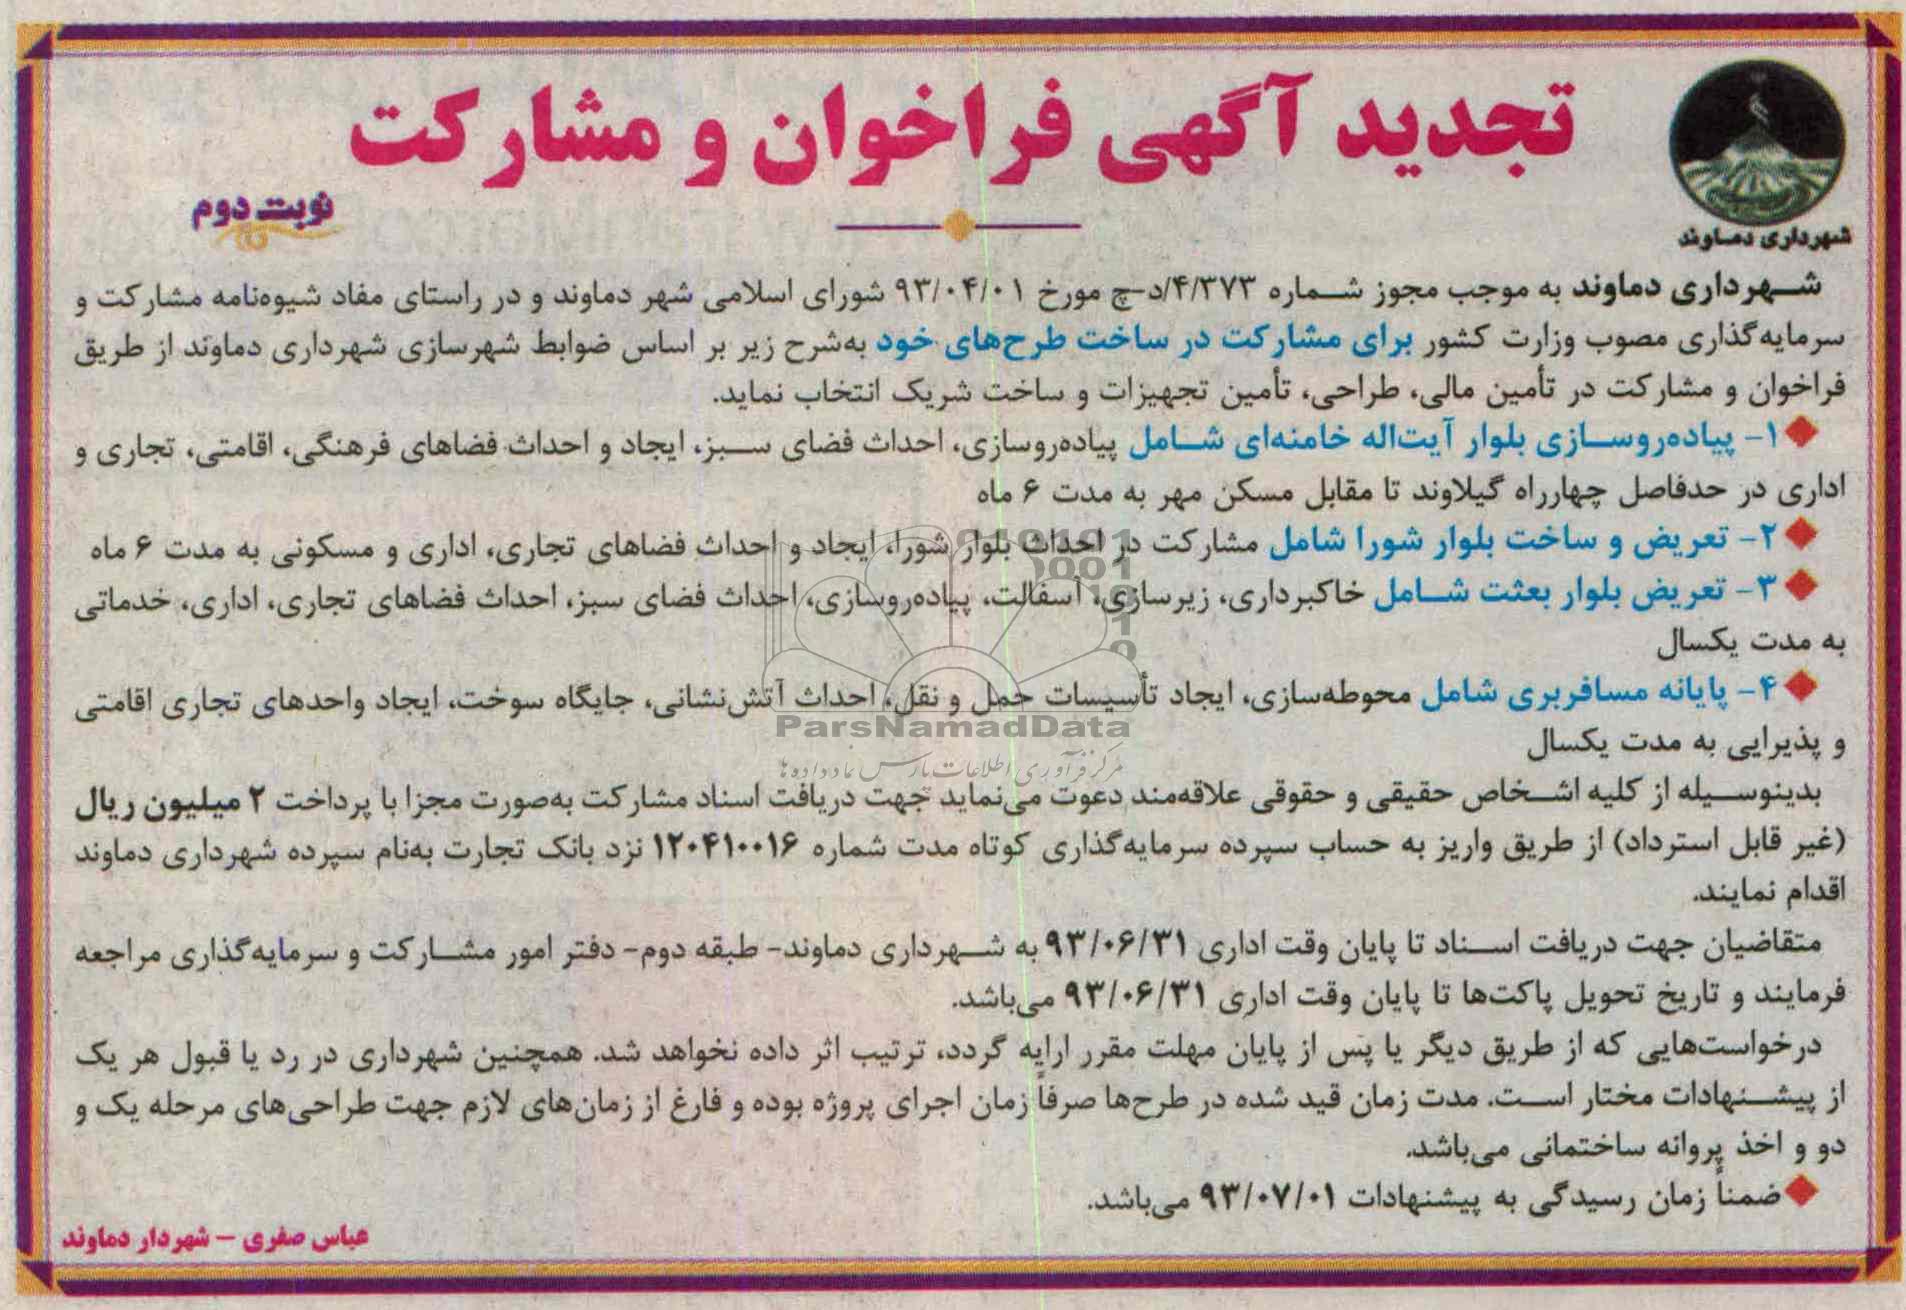 تجدید آگهی فراخوان و مشارکت
شهرداری دماوند
نوبت دوم
شهرداری دماوند به موجب مجوز شماره ۴/۳۷۳/د-چ مورخ ۹۳/۰۴/۰۱ شورای اسلامی شهر دماوند و در راستای مفاد شیوه‌نامه مشارکت و
سرمایه‌گذاری مصوب وزارت کشور برای مشارکت در ساخت طرح‌های خود به‌شرح زیر بر اساس ضوابط شهرسازی شهرداری دماوند از طریق
فراخوان و مشارکت در تأمین مالی، طراحی، تأمین تجهیزات و ساخت شریک انتخاب نماید.
۱- پیاده‌روسازی بلوار آیت‌اله خامنه‌ای شامل پیاده‌روسازی، احداث فضای سبز، ایجاد و احداث فضاهای فرهنگی، اقامتی، تجاری و
اداری در حدفاصل چهارراه گیلاوند تا مقابل مسکن مهر به مدت ۶ ماه
۲- تعریض و ساخت بلوار شورا شامل مشارکت در احداث بلوار شورا، ایجاد و احداث فضاهای تجاری، اداری و مسکونی به مدت ۶ ماه
۳- تعریض بلوار بعثت شامل خاکبرداری، زیرسازی، آسفالت، پیاده‌روسازی، احداث فضای سبز، احداث فضاهای تجاری، اداری، خدماتی
به مدت یکسال
۴- پایانه مسافربری شامل محوطه‌سازی، ایجاد تأسیسات حمل و نقل، احداث آتش‌نشانی، جایگاه سوخت، ایجاد واحدهای تجاری اقامتی
و پذیرایی به مدت یکسال
ParsNamadData
مرکز فرآوری اطلاعات پارس نماد داده‌ها
بدینوسیله از کلیه اشخاص حقیقی و حقوقی علاقه‌مند دعوت می‌نماید جهت دریافت اسناد مشارکت به‌صورت مجزا با پرداخت ۲ میلیون ریال
(غیر قابل استرداد) از طریق واریز به حساب سپرده سرمایه‌گذاری کوتاه مدت شماره ۱۲۰۴۱۰۰۱۶ نزد بانک تجارت به‌نام سپرده شهرداری دماوند
اقدام نمایند.
متقاضیان جهت دریافت اسناد تا پایان وقت اداری ۹۳/۰۶/۳۱ به شهرداری دماوند- طبقه دوم- دفتر امور مشارکت و سرمایه‌گذاری مراجعه
فرمایند و تاریخ تحویل پاکت‌ها تا پایان وقت اداری ۹۳/۰۶/۳۱ می‌باشد.
درخواست‌هایی که از طریق دیگر یا پس از پایان مهلت مقرر ارایه گردد، ترتیب اثر داده نخواهد شد. همچنین شهرداری در رد یا قبول هر یک
از پیشنهادات مختار است. مدت زمان قید شده در طرح‌ها صرفاً زمان اجرای پروژه بوده و فارغ از زمان‌های لازم جهت طراحی‌های مرحله یک و
دو و اخذ پروانه ساختمانی می‌باشد.
ضمناً زمان رسیدگی به پیشنهادات ۹۳/۰۷/۰۱ می‌باشد.
عباس صفری - شهردار دماوند